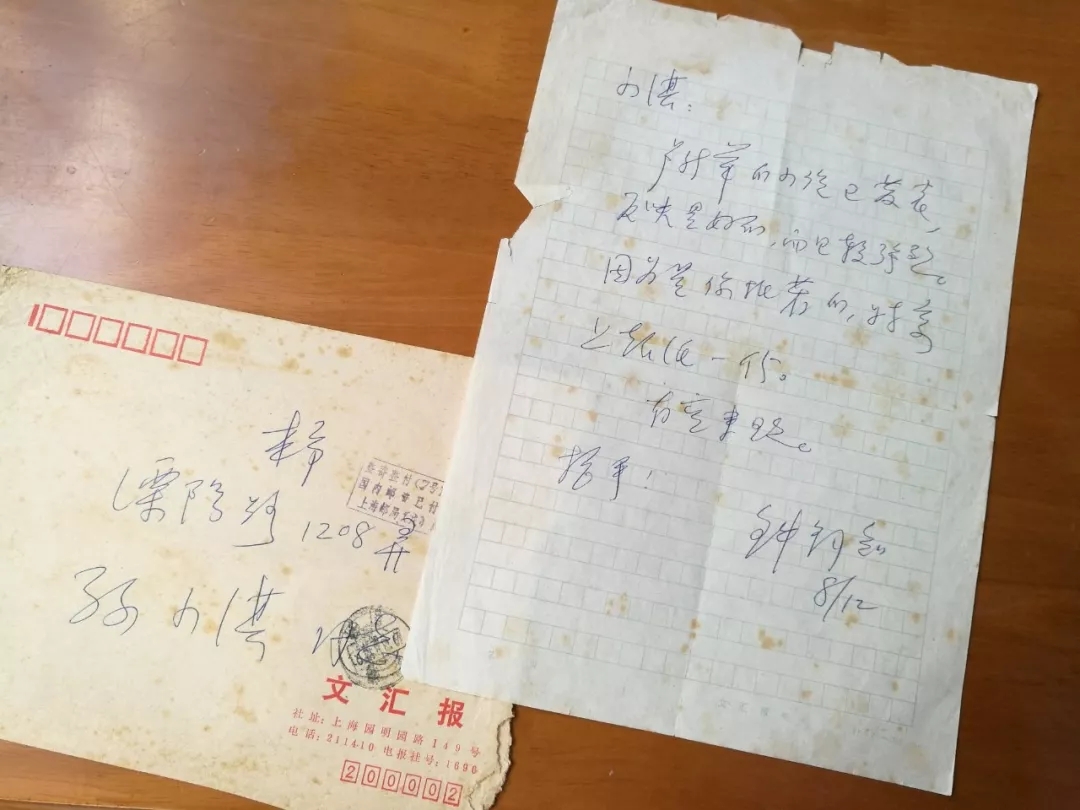 本市
溧阳路1208弄
孙小淇
国内邮资已付
文汇报
社址:上海圆明园路149号
电话:211410 电报挂号:1696
200002
小淇:
卢新华的小说已发表,
反映是好的,而且较强烈。
因为是你推荐的,特寄
上报纸一份。
有空来玩。
握手!
钟锡知
8/12
文汇报